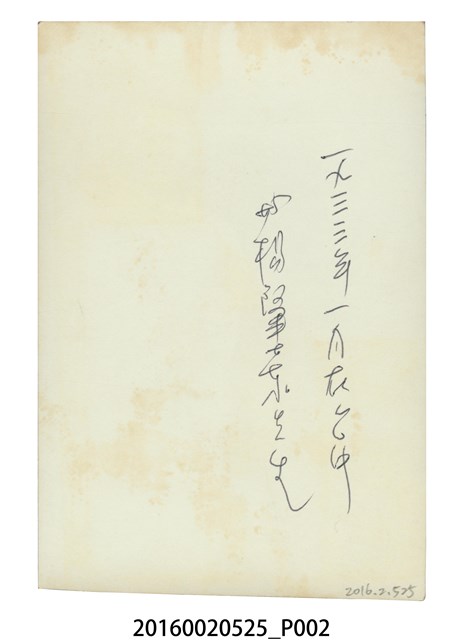 一九三三年一月在台中
与楊肇嘉先生
2016.2.525
20160020525_P002